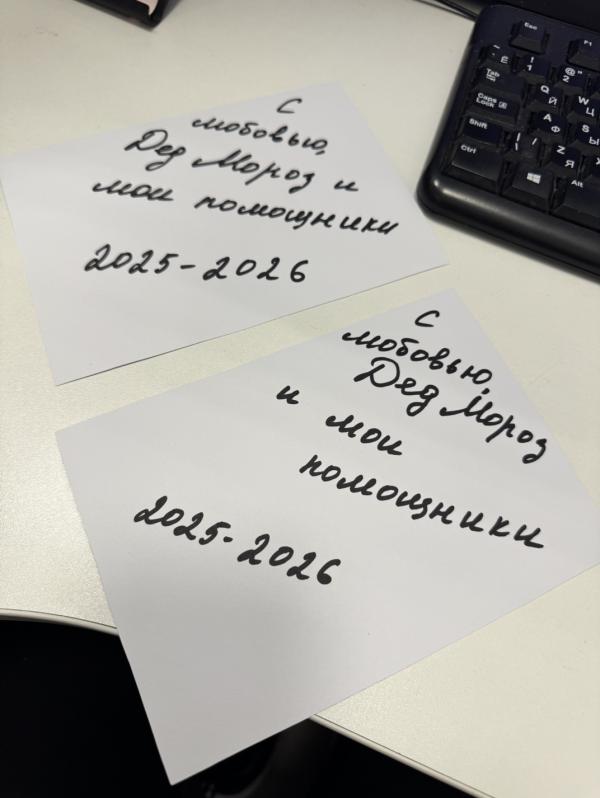 С
любовью,
Дед Мороз и
мои помощники
2025-2026
С
любовью,
Дед Мороз
и мои
помощники
2025-2026
Esc
F1
~ Ё
! 1
@ " 2
Tab
Q Й
W Ц
Caps Lock A
A Ф
S Ы
Shift
| \ /
Z Я
Ctrl
Alt